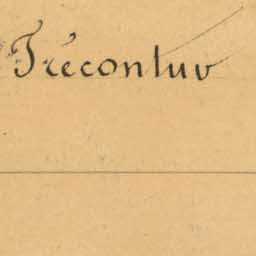 Trécontuv